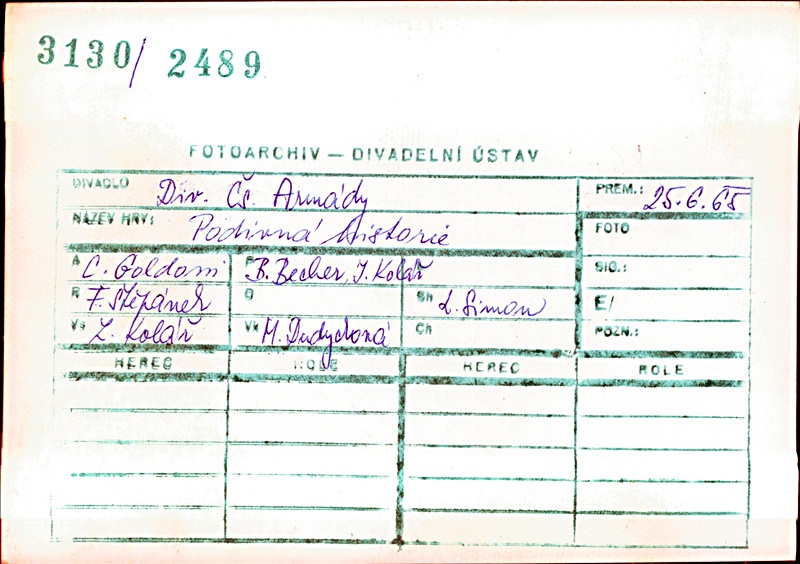 3130/ 2489
FOTOARCHIV — DIVADELNÍ ÚSTAV
DIVADLO Div. Čs. Armády PREM.: 25.6.65
NÁZEV HRY: Podivná historie FOTO
A C. Goldoni P B. Becher, J. Kolář SIG.:
R F. Štěpánek D Sh L. Simon E/
Vs Z. Kolář Vk M. Dudychová Ch POZN.:
HEREC ROLE HEREC ROLE